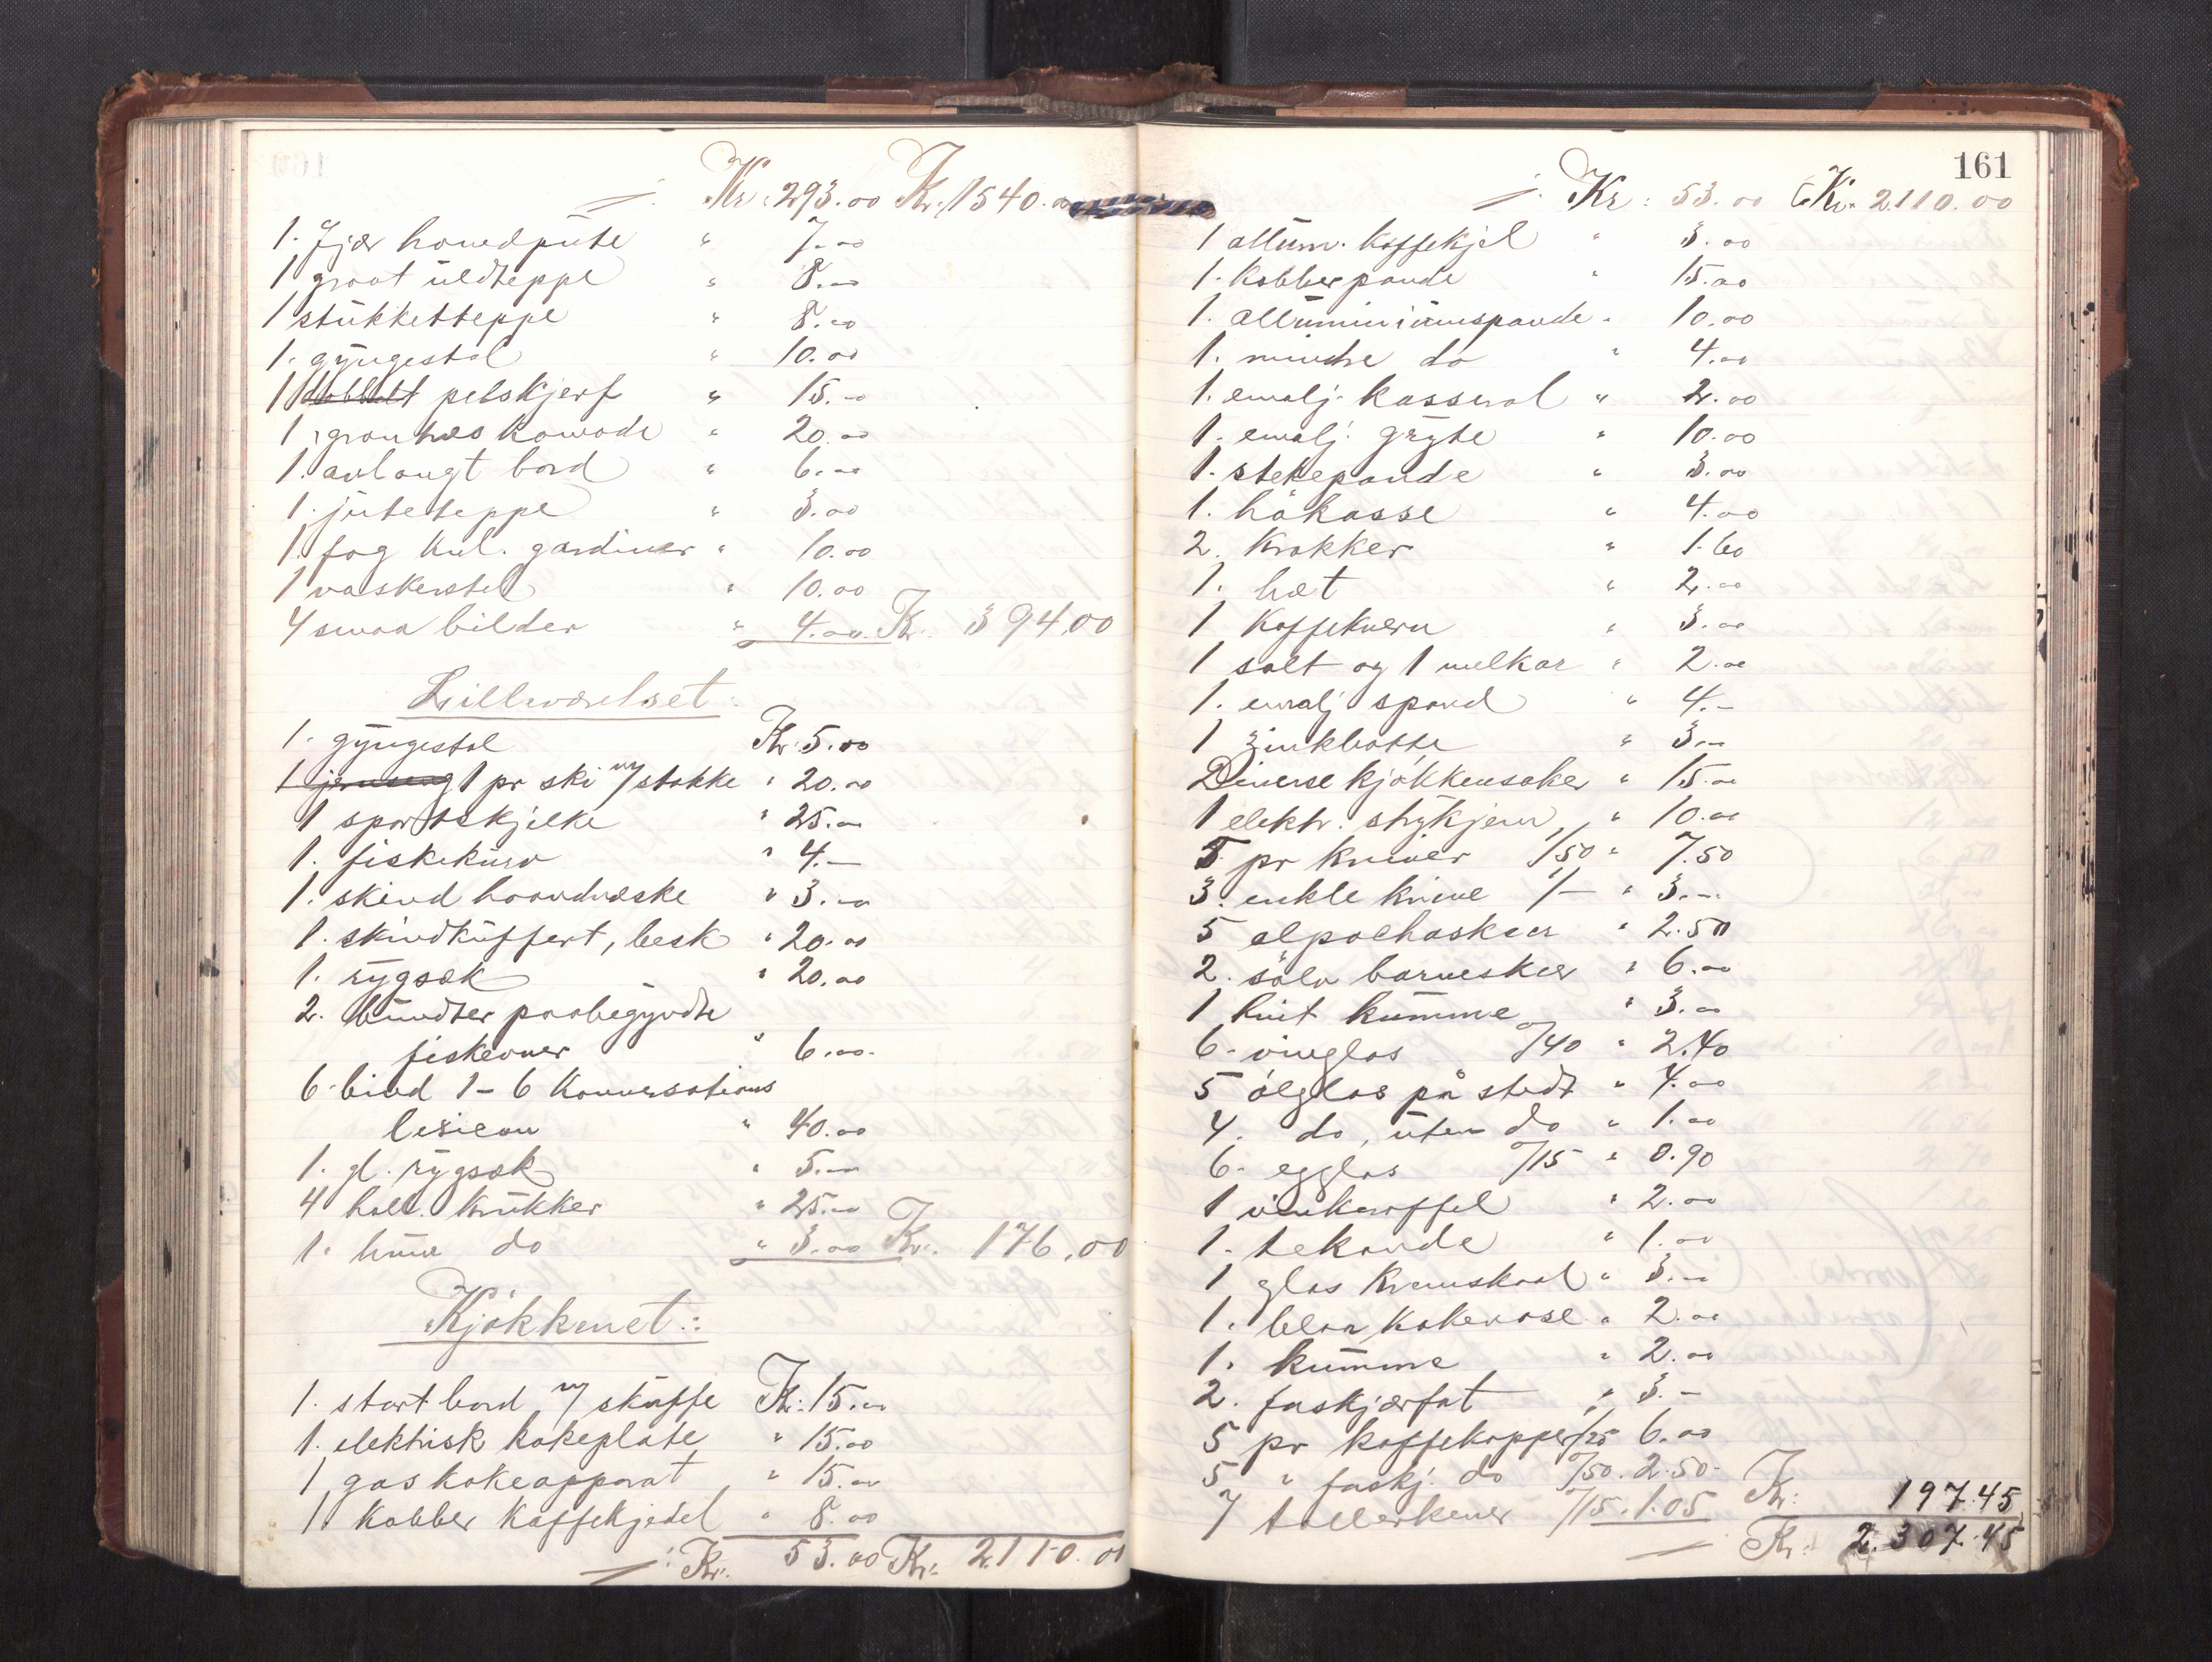 Kr: 293.00 Kr. 1540.00
1. fjær hovedpute " 7.00
1 graat uldteppe " 8.00
1 stukketteppe " 8.00
1. gyngestol " 10.00
1 dobbelt pelskjerf " 15.00
1 grønhvs komode " 20.00
1. avlangt bord " 6.00
1. juteteppe " 3.00
1. fag hul. gardiner " 10.00
1 vaskerstel " 10.00
4 smaa bilder " 4.00 Kr. 394.00
Lilleværelset:
1. gyngestol Kr. 5.00
1 jernseng 1 pr ski m/ stokke " 20.00
1 sportskjelke " 25.00
1. fiskekurv " 4.–
1. skind haandvæske " 3.00
1. skindkuffert, besk " 20.00
1. rygsæk " 20.00
2. bundter paabegyndte
fiskevner " 6.00
6 bind 1–6 Konversations
lexicon " 40.00
1. gl. rygsæk " 5.00
4 holl. krukker " 25.00
1. brun do " 3.00 Kr. 176.00
Kjøkkenet:
1. stort bord m/ skuffe Kr. 15.00
1. elektrisk kokeplate " 15.00
1 gaskokeapparat " 15.00
1. kobber kaffekjedel " 8.00
Kr. 53.00 Kr. 2110.00
161
Kr: 53.00 Kr. 2110.00
1 allum. kaffekjel " 3.00
1. kobberpande " 15.00
1. alluminiumspande " 10.00
1. mindre do " 4.00
1. emalj. kasserol " 2.00
1. emalj. gryte " 10.00
1. stekepande " 3.00
1. høkasse " 4.00
2. krakker " 1.60
1. bøt " 2.00
1 kaffekvern " 3.00
1 salt og 1 melkar " 2.00
1. emalj spand " 4.–
1 zinkbøtte " 3.–
Diverse kjøkkensaker " 15.00
1 elektr. strykjern " 10.00
5 pr kniver 1/50 " 7.50
3. enkle knive 1/– " 3.–
5 alpachaskeer " 2.50
2. sølv barneskeer " 6.00
1 hvit kumme " 3.00
6. vinglas 0/40 " 2.40
5 ølglas på stedt " 4.00
4. do, uten do " 1.00
6. egglas 0/15 " 0.90
1 vinkaraffel " 2.00
1. tekande " 1.00
1 glas kremskaal " 3.00
1. blaa kakevase " 2.00
1. kumme " 2.00
2. faskjærfat " 3.–
5 pr kaffekopper 1/25 6.00
5 " faskj. do 0/50 . 2.50
7 tallerkener 0/15 . 1.05 Kr. 197.45
Kr. 2.307.45